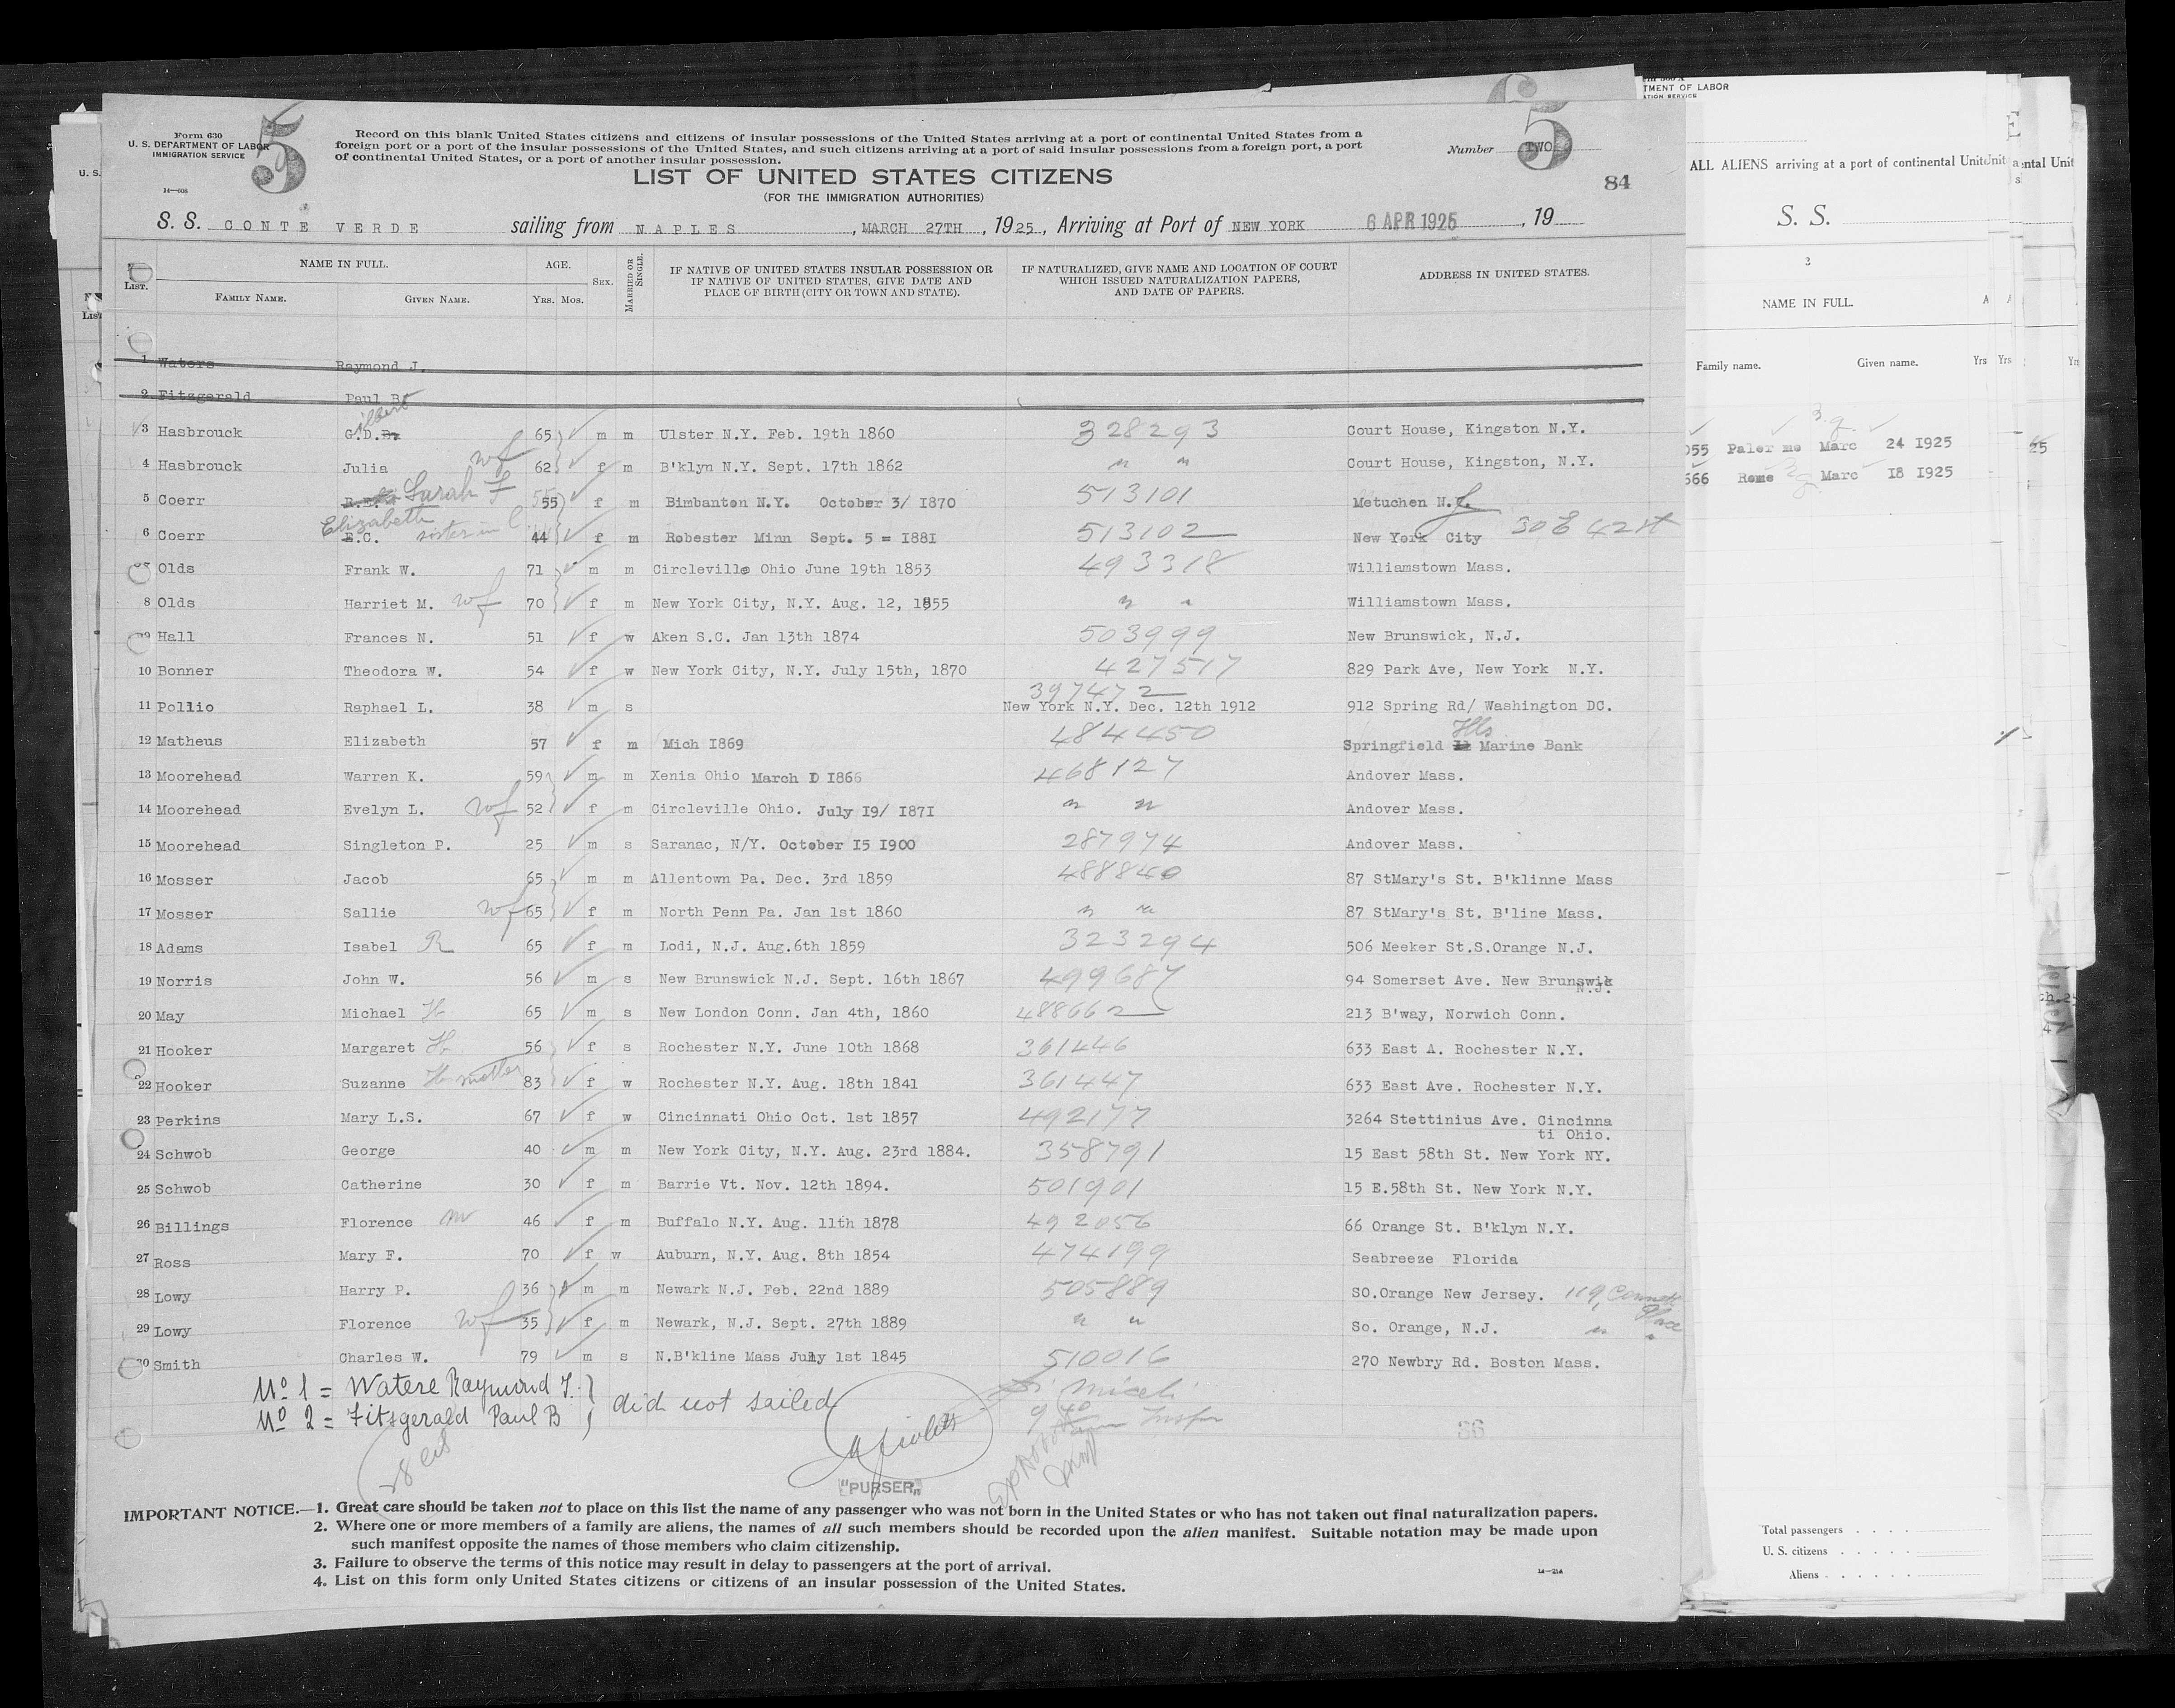 Form 630
U. S. DEPARTMENT OF LABOR
IMMIGRATION SERVICE
14—608
5
Record on this blank United States citizens and citizens of insular possessions of the United States arriving at a port of continental United States from a
foreign port or a port of the insular possessions of the United States, and such citizens arriving at a port of said insular possessions from a foreign port, a port
of continental United States, or a port of another insular possession.
Number TWO
5
84
LIST OF UNITED STATES CITIZENS
(FOR THE IMMIGRATION AUTHORITIES)
S. S. CONTE VERDE sailing from NAPLES, MARCH 27TH, 1925, Arriving at Port of NEW YORK 6 APR 1925, 19
LIST. NAME IN FULL. AGE. SEX. MARRIED OR SINGLE. IF NATIVE OF UNITED STATES INSULAR POSSESSION OR IF NATIVE OF UNITED STATES, GIVE DATE AND PLACE OF BIRTH (CITY OR TOWN AND STATE). IF NATURALIZED, GIVE NAME AND LOCATION OF COURT WHICH ISSUED NATURALIZATION PAPERS, AND DATE OF PAPERS. ADDRESS IN UNITED STATES.
FAMILY NAME. GIVEN NAME. Yrs. Mos.
1 Waters Raymond J.
2 Fitzgerald Paul B
3 Hasbrouck G.D. ilbert 65 m m Ulster N.Y. Feb. 19th 1860 328293 Court House, Kingston N.Y.
4 Hasbrouck Julia wf 62 f m B'klyn N.Y. Sept. 17th 1862 " " Court House, Kingston, N.Y.
5 Coerr Sarah F 55 f m Bimbanton N.Y. October 3/ I870 513101 Metuchen N.J.
6 Coerr E.C. Elizabeth sister in l 44 f m Robester Minn Sept. 5 = I88I 513102 New York City 30 E 42 st
7 Olds Frank W. 71 m m Circleville Ohio June 19th 1853 493318 Williamstown Mass.
8 Olds Harriet M. wf 70 f m New York City, N.Y. Aug. 12, 1855 " " Williamstown Mass.
9 Hall Frances N. 51 f w Aken S.C. Jan 13th 1874 503999 New Brunswick, N.J.
10 Bonner Theodora W. 54 f w New York City, N.Y. July 15th, 1870 427517 829 Park Ave, New York N.Y.
11 Pollio Raphael L. 38 m s 397472 New York N.Y. Dec. 12th 1912 912 Spring Rd/ Washington DC.
12 Matheus Elizabeth 57 f m Mich I869 484450 Springfield Ills Marine Bank
13 Moorehead Warren K. 59 m m Xenia Ohio March D I866 468127 Andover Mass.
14 Moorehead Evelyn L. wf 52 f m Circleville Ohio. July I9/ I87I " " Andover Mass.
15 Moorehead Singleton P. 25 m s Saranac, N/Y. October I5 I900 287974 Andover Mass.
16 Mosser Jacob 65 m m Allentown Pa. Dec. 3rd 1859 488840 87 StMary's St. B'klinne Mass
17 Mosser Sallie wf 65 f m North Penn Pa. Jan 1st 1860 " " 87 StMary's St. B'line Mass.
18 Adams Isabel R 65 f m Lodi, N.J. Aug.6th 1859 323294 506 Meeker St.S.Orange N.J.
19 Norris John W. 56 m s New Brunswick N.J. Sept. 16th 1867 499687 94 Somerset Ave. New Brunswik
N.J.
20 May Michael H 65 m s New London Conn. Jan 4th, 1860 488662 213 B'way, Norwich Conn.
21 Hooker Margaret H. 56 f s Rochester N.Y. June 10th 1868 361446 633 East A. Rochester N.Y.
22 Hooker Suzanne H mother 83 f w Rochester N.Y. Aug. 18th 1841 361447 633 East Ave. Rochester N.Y.
23 Perkins Mary L.S. 67 f w Cincinnati Ohio Oct. 1st 1857 492177 3264 Stettinius Ave. Cincinna
ti Ohio.
24 Schwob George 40 m m New York City, N.Y. Aug. 23rd 1884. 358791 15 East 58th St. New York NY.
25 Schwob Catherine 30 f m Barrie Vt. Nov. 12th 1894. 501901 15 E.58th St. New York N.Y.
26 Billings Florence M 46 f m Buffalo N.Y. Aug. 11th 1878 492056 66 Orange St. B'klyn N.Y.
27 Ross Mary F. 70 f w Auburn, N.Y. Aug. 8th 1854 474199 Seabreeze Florida
28 Lowy Harry P. 36 m m Newark N.J. Feb. 22nd 1889 505889 SO.Orange New Jersey. 119, Connett Place
29 Lowy Florence wf 35 f m Newark, N.J. Sept. 27th 1889 " " So. Orange, N.J. " "
30 Smith Charles W. 79 m s N.B'kline Mass July 1st 1845 510016 270 Newbry Rd. Boston Mass.
No 1 = Watere Raymond J.
No 2 = Fitzgerald Paul B } did not sailed
28 cit
36
"PURSER"
IMPORTANT NOTICE.—1. Great care should be taken not to place on this list the name of any passenger who was not born in the United States or who has not taken out final naturalization papers.
2. Where one or more members of a family are aliens, the names of all such members should be recorded upon the alien manifest. Suitable notation may be made upon
such manifest opposite the names of those members who claim citizenship.
3. Failure to observe the terms of this notice may result in delay to passengers at the port of arrival.
4. List on this form only United States citizens or citizens of an insular possession of the United States.
14—214
TMENT OF LABOR
ATION SERVICE
ALL ALIENS arriving at a port of continental Unit
S. S.
3
NAME IN FULL.
Family name. Given name. Yrs
055 Palermo Marc 24 I925
566 Rome Marc I8 I925
25
Total passengers
U. S. citizens
Aliens